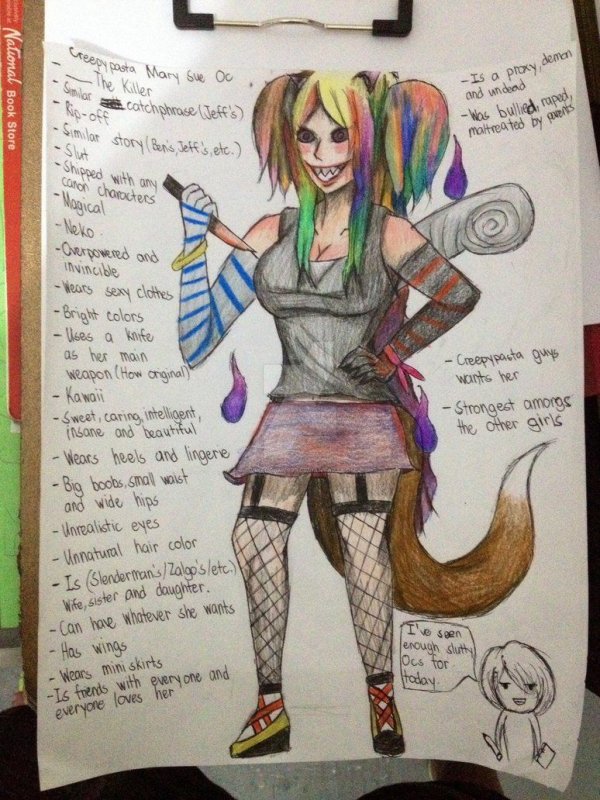 National Book Store
- Creepypasta Mary Sue Oc
- ___ The Killer
- Similar catchphrase (Jeff's)
- Rip-off
- Similar story (Ben's, Jeff's, etc.)
- Slut
- Shipped with any
canon characters
- Magical
- Neko
- Overpowered and
invincible
- Wears sexy clothes
- Bright colors
- Uses a knife
as her main
weapon (How original)
- Kawaii
- Sweet, caring, intelligent,
insane and beautiful
- Wears heels and lingerie
- Big boobs, small waist
and wide hips
- Unrealistic eyes
- Unnatural hair color
- Is (Slenderman's/Zalgo's/etc.)
wife, sister and daughter.
- Can have whatever she wants
- Has wings
- Wears mini skirts
- Is friends with everyone and
everyone loves her
- Is a proxy, demon
and undead
- Was bullied, raped,
maltreated by parents
- Creepypasta guys
wants her
- Strongest amongs
the other girls
I've seen
enough slutty
Ocs for
today.